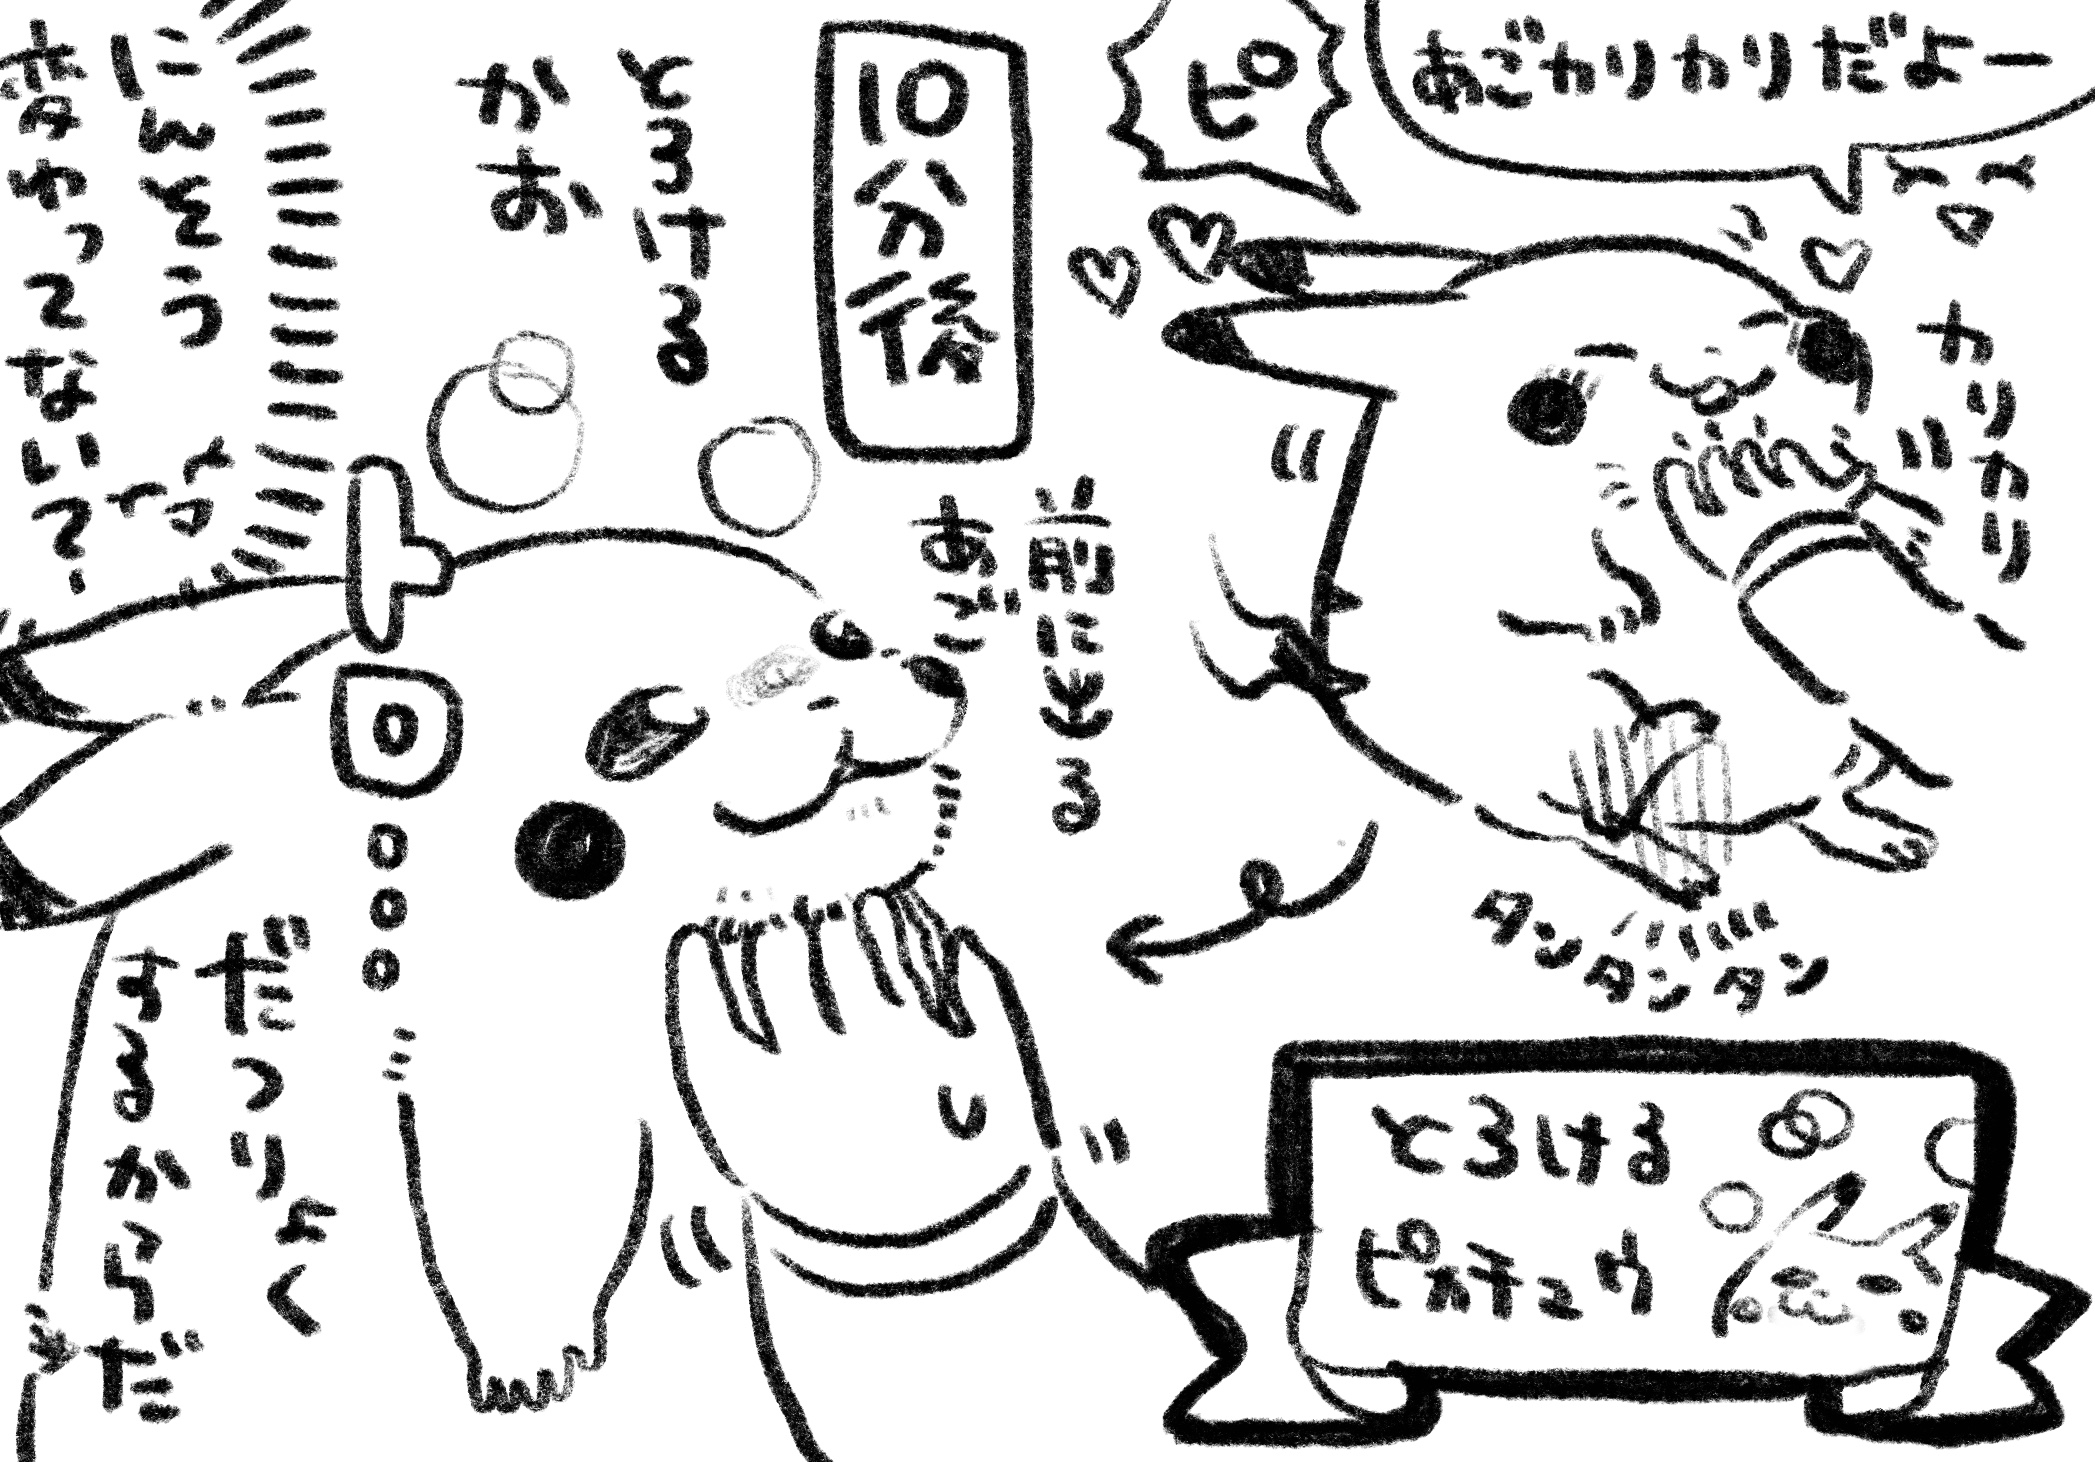 とろける
ピカチュウ
あごカリカリだよー
ピ
カリカリ
タンタンタン
10分後
前にせる
あご
とろける
かお
ト
ロ
にんどう
変わってない？
だつりょく
するからだ